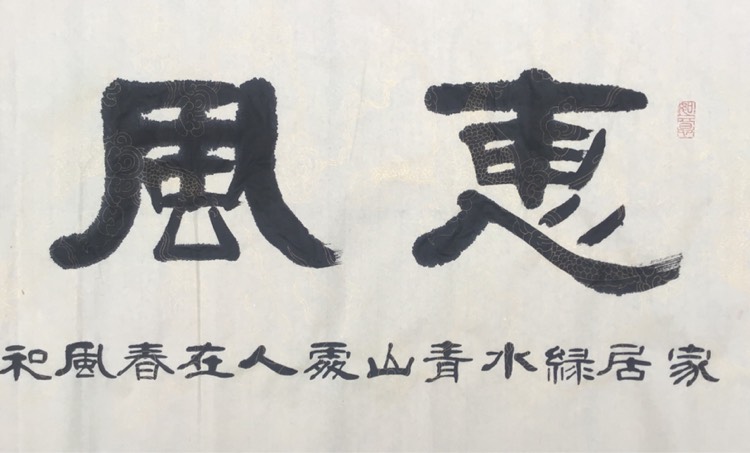 惠風
家居緑水青山處人在春風和